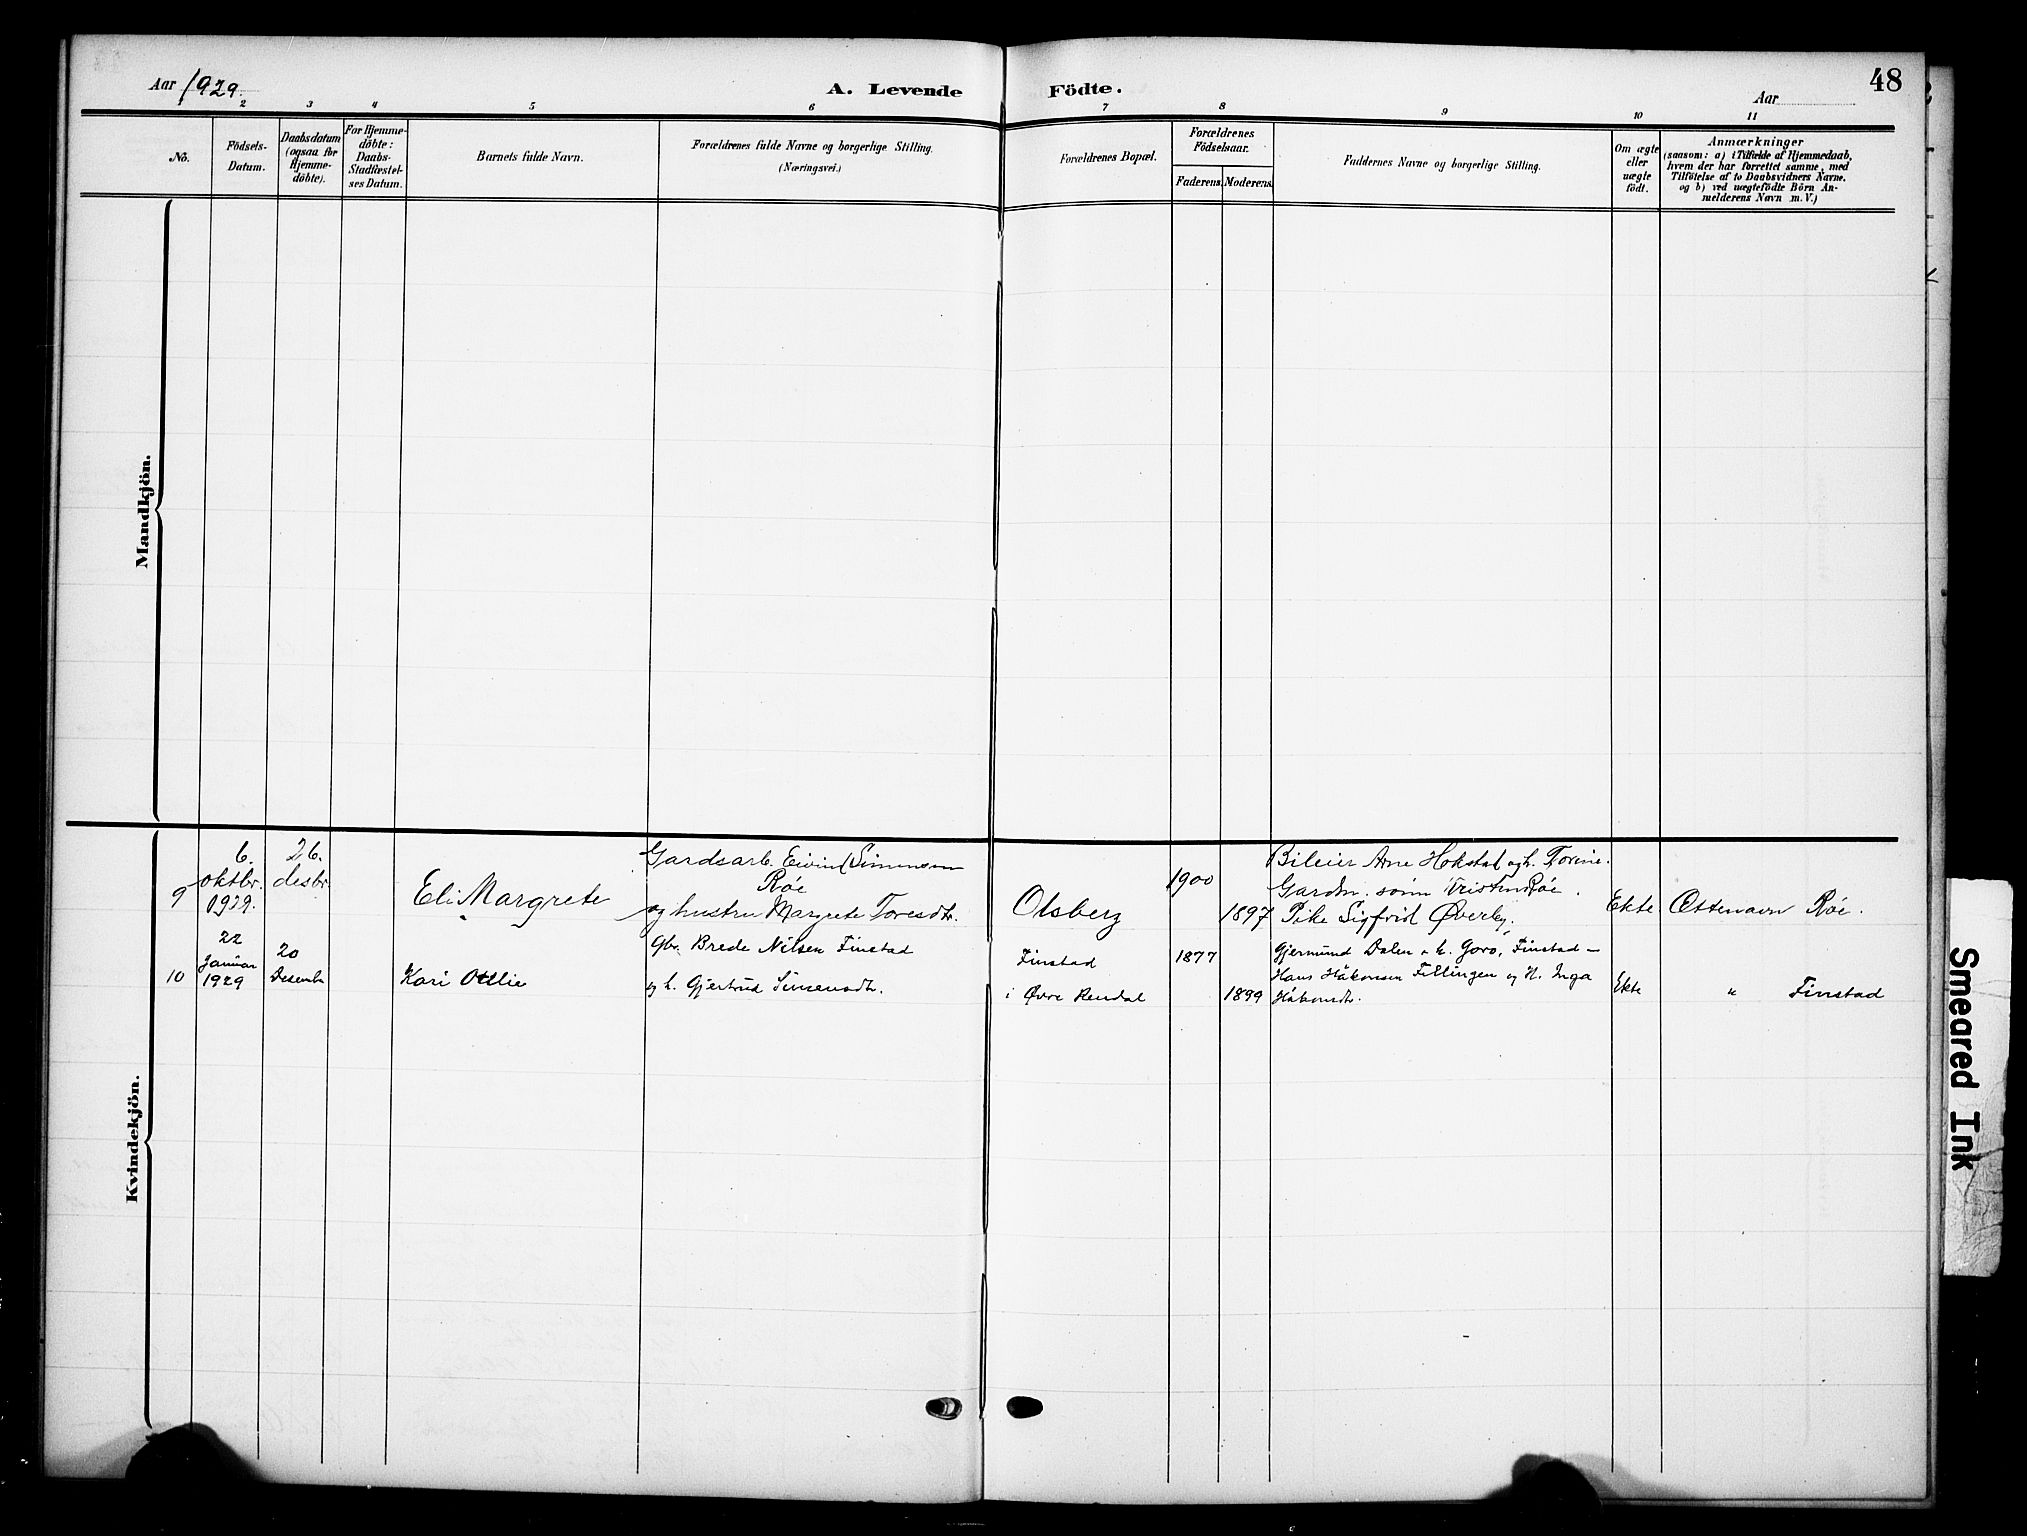 Aar 1929.
A. Levende Födte.
Aar
48
1 2 3 4 5 6 7 8 9 10 11
No.
Födsels-
Datum.
Daabsdatum
(ogsaa for
Hjemme-
döbte).
For Hjemme-
döbte:
Daabs-
Stadfæstel-
ses Datum.
Barnets fulde Navn.
Forældrenes fulde Navne og borgerlige Stilling.
(Næringsvei.)
Forældrenes Bopæl.
Forældrenes
Födselsaar.
Faderens. Moderens.
Faddernes Navne og borgerlige Stilling.
Om ægte
eller
uægte
födt.
Anmærkninger
(saasom: a) i Tilfælde af Hjemmedaab,
hvem der har forrettet samme, med
Tilföielse af to Daabsvidners Navne.
og b) ved uægtefödte Börn An-
melderens Navn m. V.)
Mandkjön.
Kvindekjön.
9
6.
oktbr.
1929.
26.
desbr.
Eli Margrete
Gardsarb. Eivind Simensen
Røe
og hustru Margrete Toresdtr.
Olsberg
1900
1897
Bileier Arne Hokstad og h. Torine.
Gardm. sønn Røe.
Pike Sigfrid Øverby.
Ekte
Ættenavn Røe.
10
22
Januar
1929
20
Desember
Kari Otilie
Gbr. Brede Nilsen Finstad
og h. Gjertrud Simensdtr.
Finstad
i Øvre Rendal
1877
1899
Gjermund Dalen o h. Goro, Finstad –
Hans Håkonsen Fillingen og H. Inga
Håkonsdtr.
Ekte
" Finstad
Smeared Ink